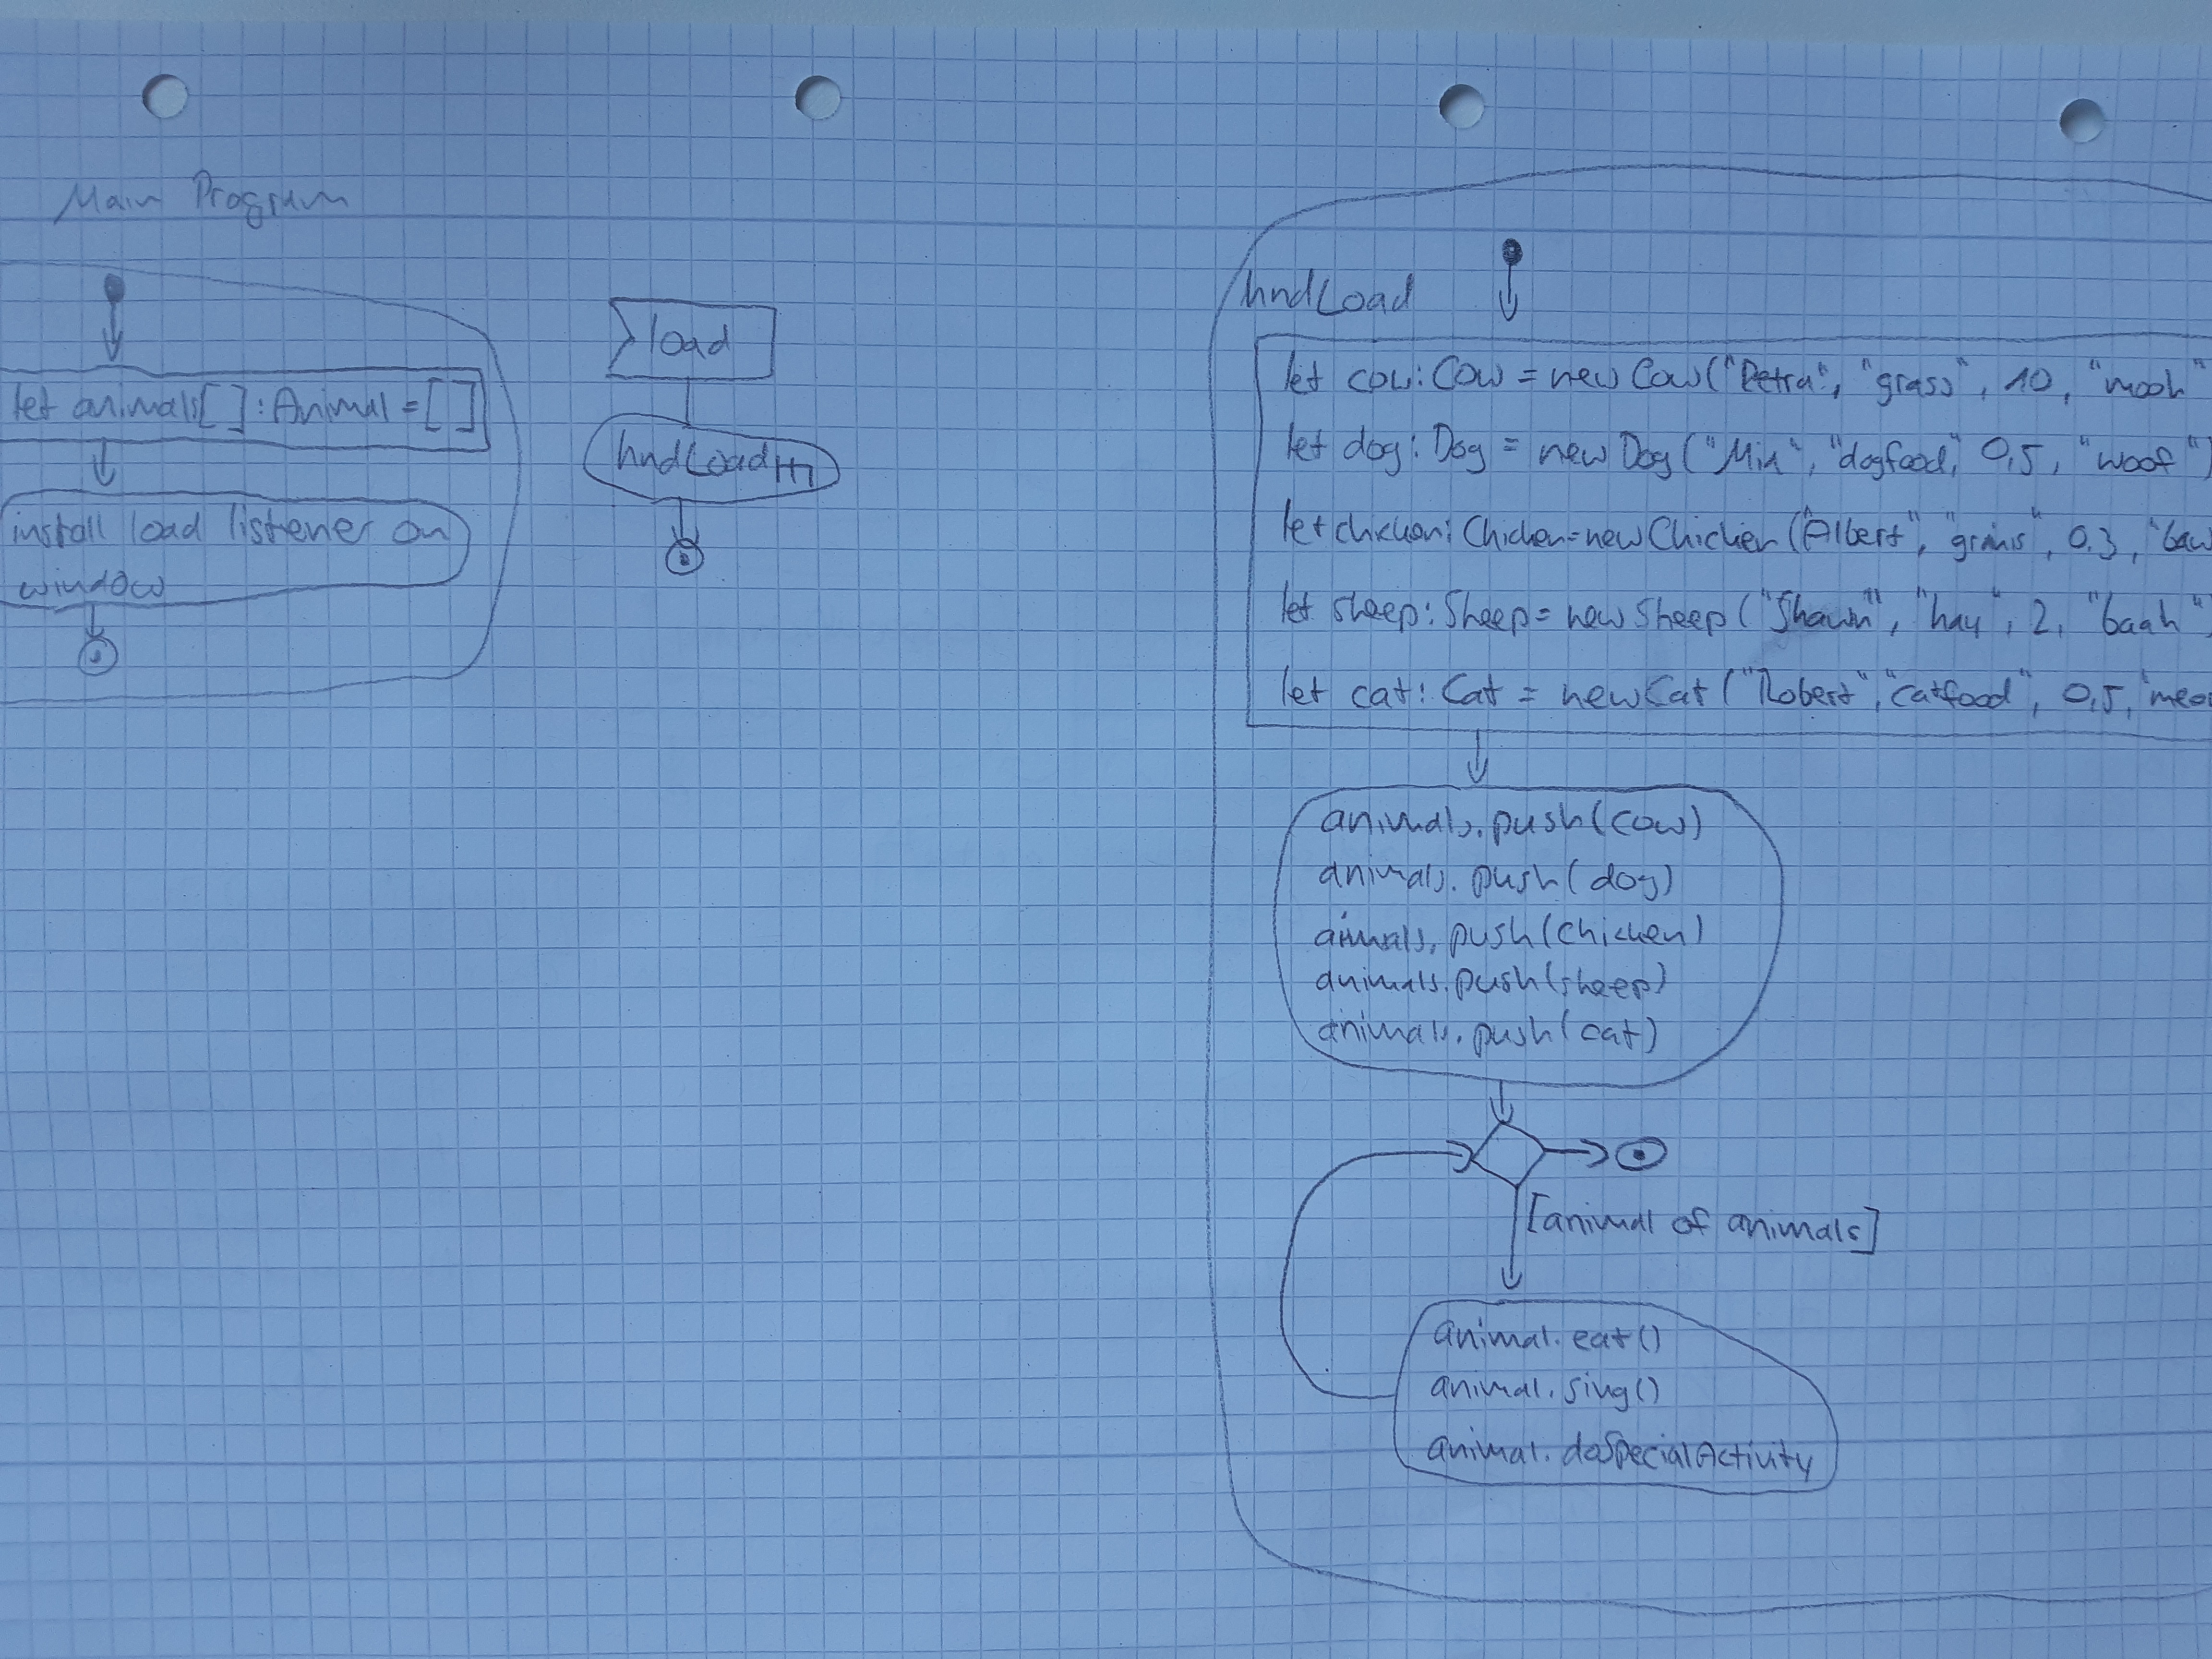 Main Program
let animals[]:Animal=[]
install load listener on
window
load
hndLoad
hndLoad
let cow:Cow = new Cow("Petra", "grass", 10, "mooh"
let dog: Dog = new Dog ("Mia", "dogfood, 0,5, "woof")
let chicken: Chicken=new Chicken ("Albert", "grains", 0.3, "baw
let sheep: Sheep= new Sheep ("Shawn", "hay", 2, "baah")
let cat: Cat = new Cat ("Robert", "catfood", 0,5, "meo
animals.push(cow)
animals.push(dog)
animals.push(chicken)
animals.push(sheep)
animals.push(cat)
[animal of animals]
animal.eat()
animal.sing()
animal.doSpecialActivity